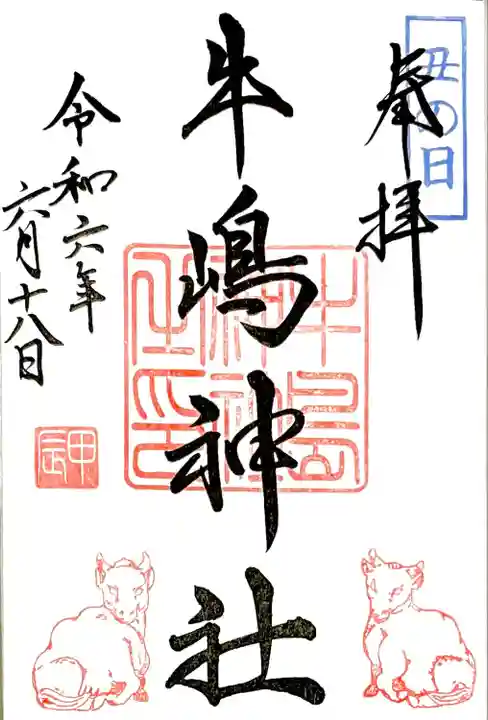 丑の日
奉拝
牛嶋神社
牛嶋神社之印
令和六年
六月十八日
甲辰